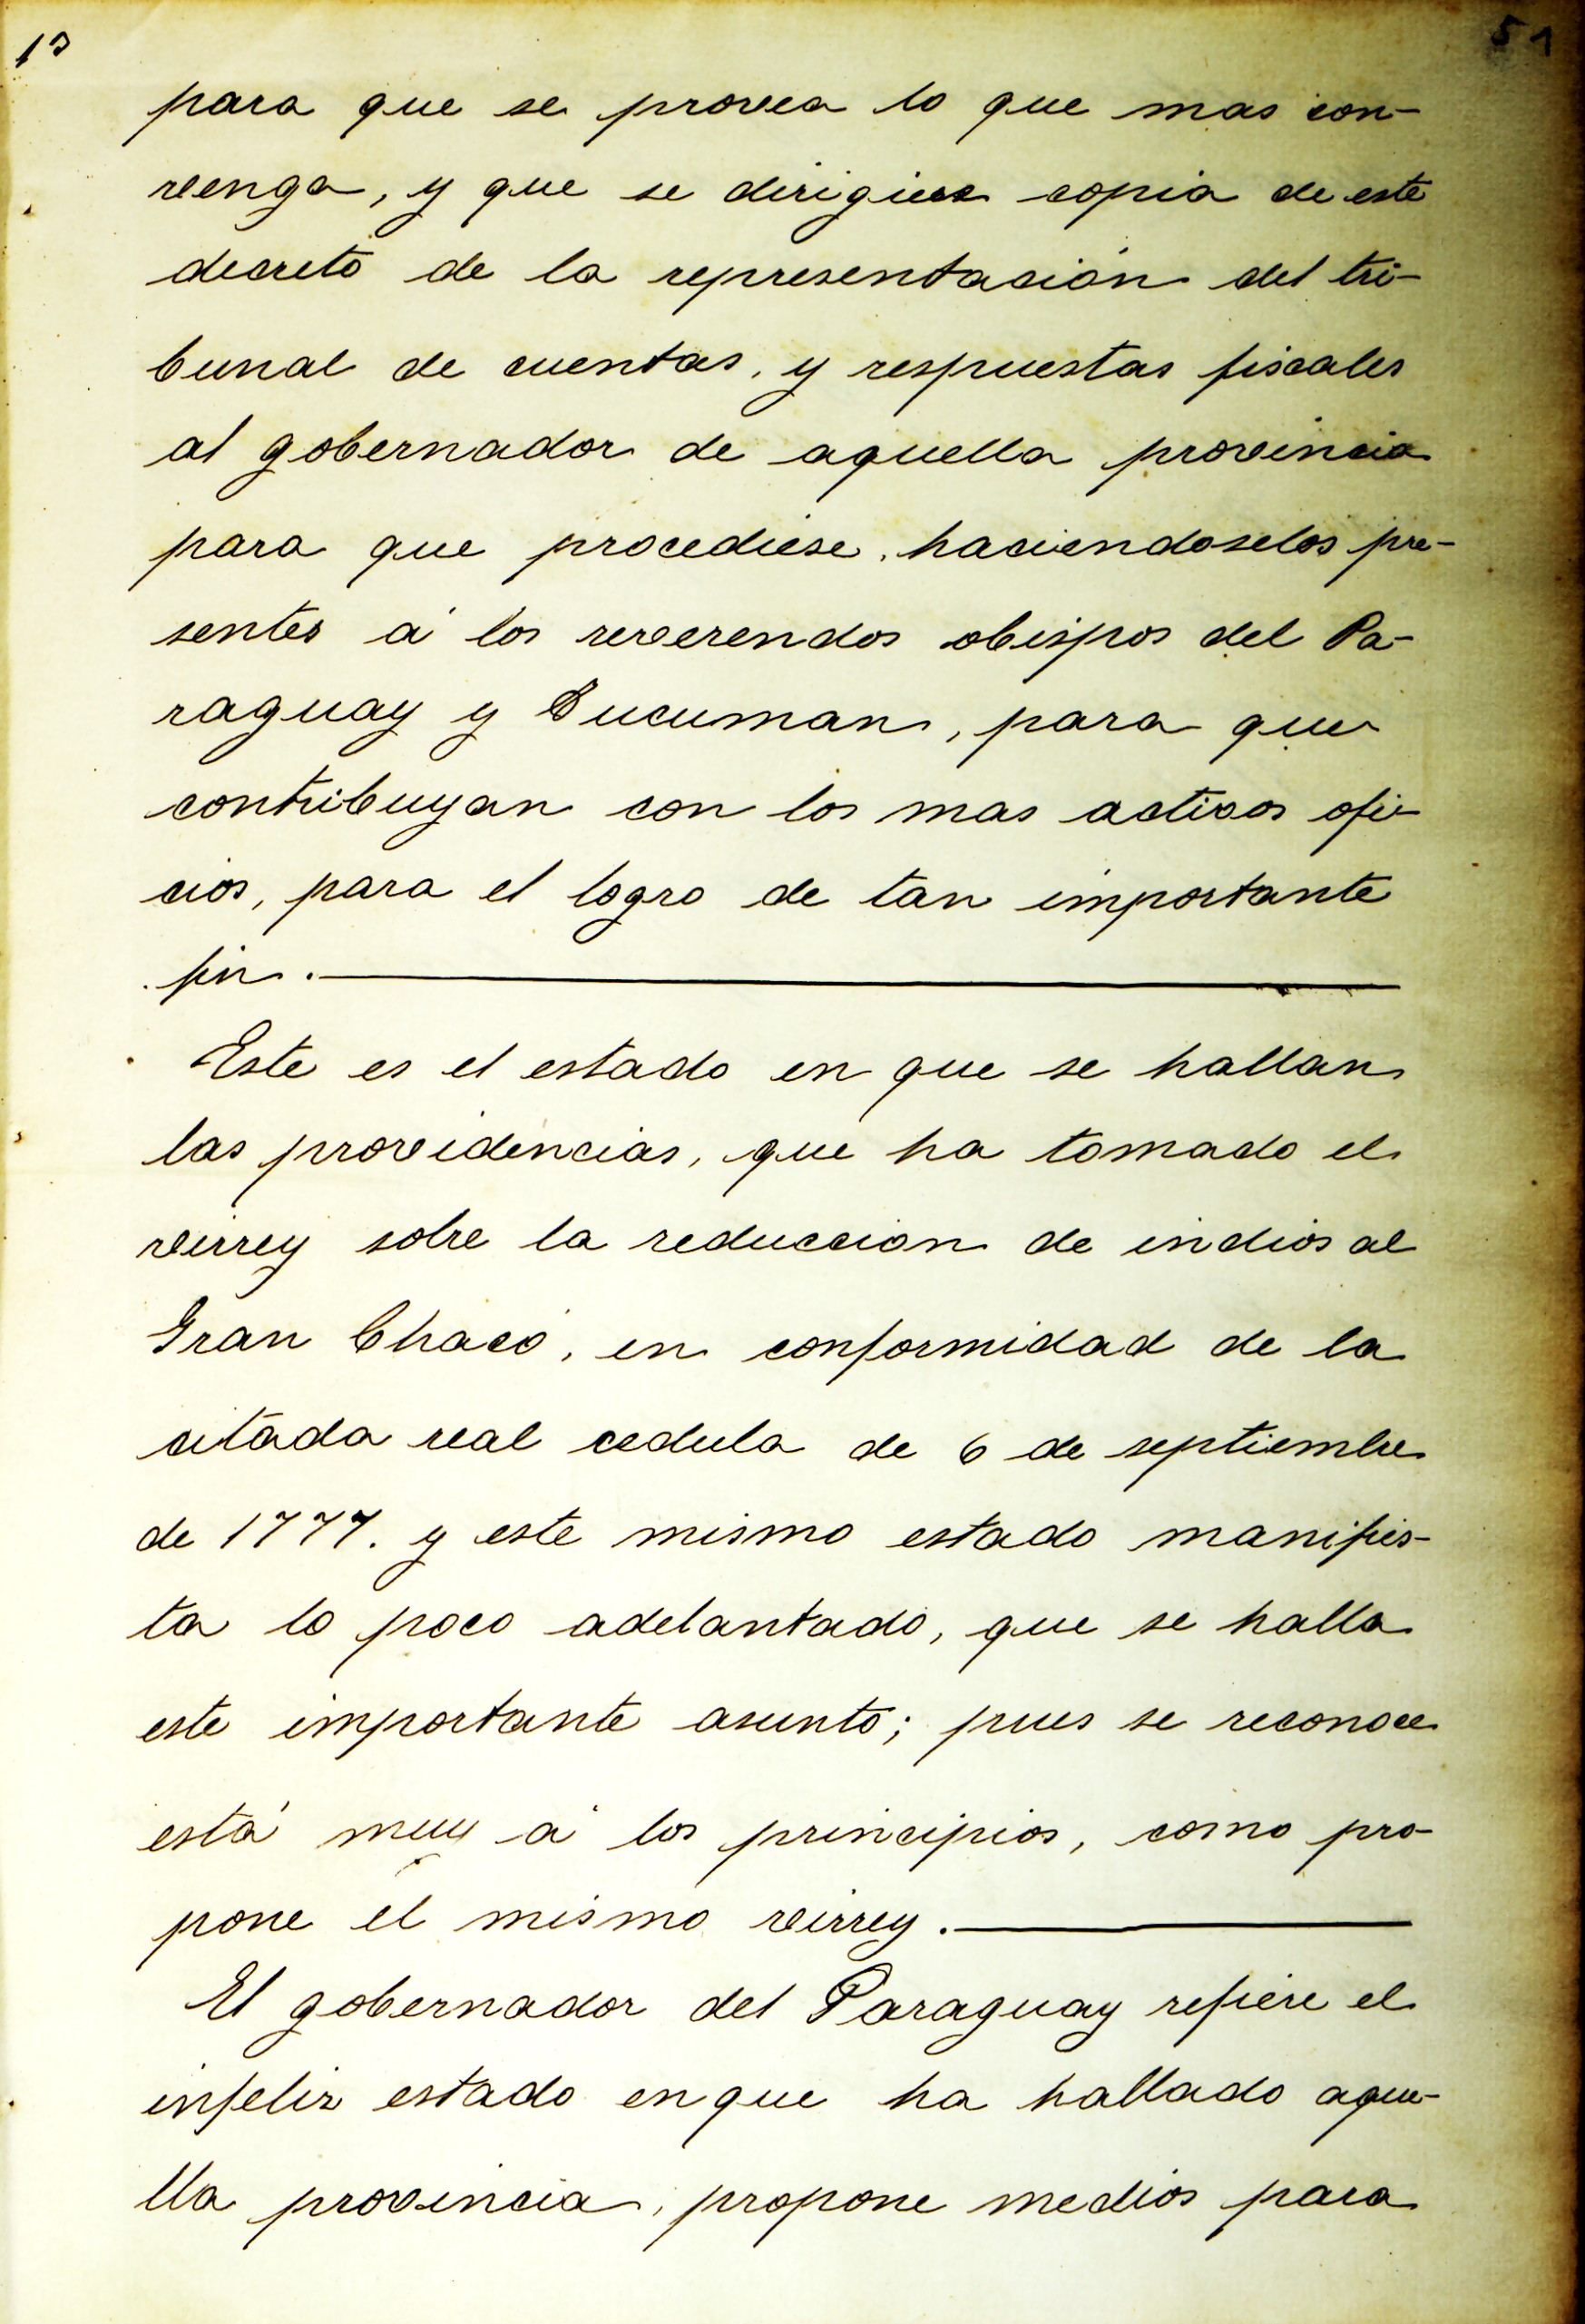 13
51
para que se provea lo que mas con-
venga, y que se dirigiese copia de este
decreto de la representación del tri-
bunal de cuentas, y respuestas fiscales
al gobernador de aquella provincia
para que procediese, haciendoselos pre-
sentes á los reverendos obispos del Pa-
raguay y Tucuman, para que
contribuyan con los mas activos ofi-
cios, para el logro de tan importante
fin.
Este es el estado en que se hallan
las providencias, que ha tomado el
virrey sobre la reduccion de indios al
Gran Chaco, en conformidad de la
citada real cedula de 6 de septiembre
de 1777. y este mismo estado manifies-
ta lo poco adelantado, que se halla
este importante asunto; pues se reconoce
está muy á los principios, como pro-
pone el mismo virrey.
El gobernador del Paraguay refiere el
infeliz estado en que ha hallado aque-
lla provincia, propone medios para